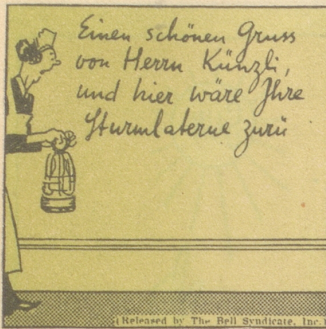 Einen schönen Gruss
von Herrn Künzli,
und hier wäre Ihre
Sturmlaterne zurü
Released by The Bell Syndicate, Inc.